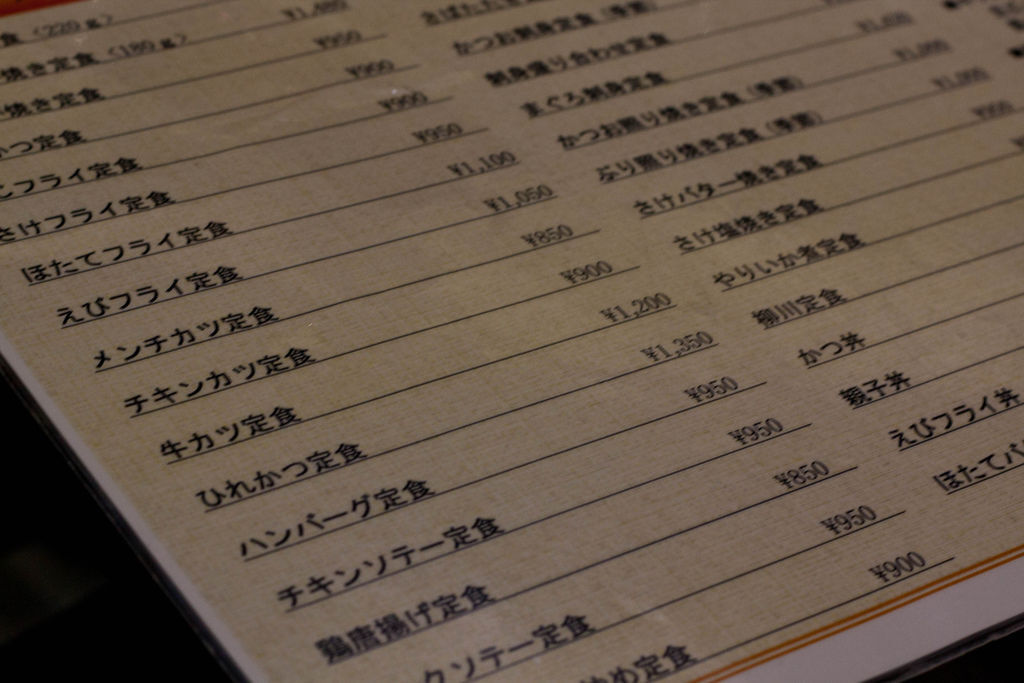 食〈220g〉
焼き定食〈180g〉 ¥1,480
焼き定食 ¥950
かつ定食 ¥900
フライ定食
さけフライ定食 ¥950
ほたてフライ定食 ¥1,100
えびフライ定食 ¥1,050
メンチカツ定食 ¥850
チキンカツ定食 ¥900
牛カツ定食 ¥1,200
ひれかつ定食 ¥1,350
ハンバーグ定食 ¥950
チキンソテー定食 ¥950
鶏唐揚げ定食 ¥850
クソテー定食 ¥950
め定食 ¥900
さばたたき
かつお刺身定食(季節)
刺身盛り合わせ定食
まぐろ刺身定食
かつお照り焼き定食(季節)
ぶり照り焼き定食(季節)
さけバター焼き定食
さけ塩焼き定食
やりいか煮定食
柳川定食
かつ丼
親子丼
えびフライ丼
ほたてバ